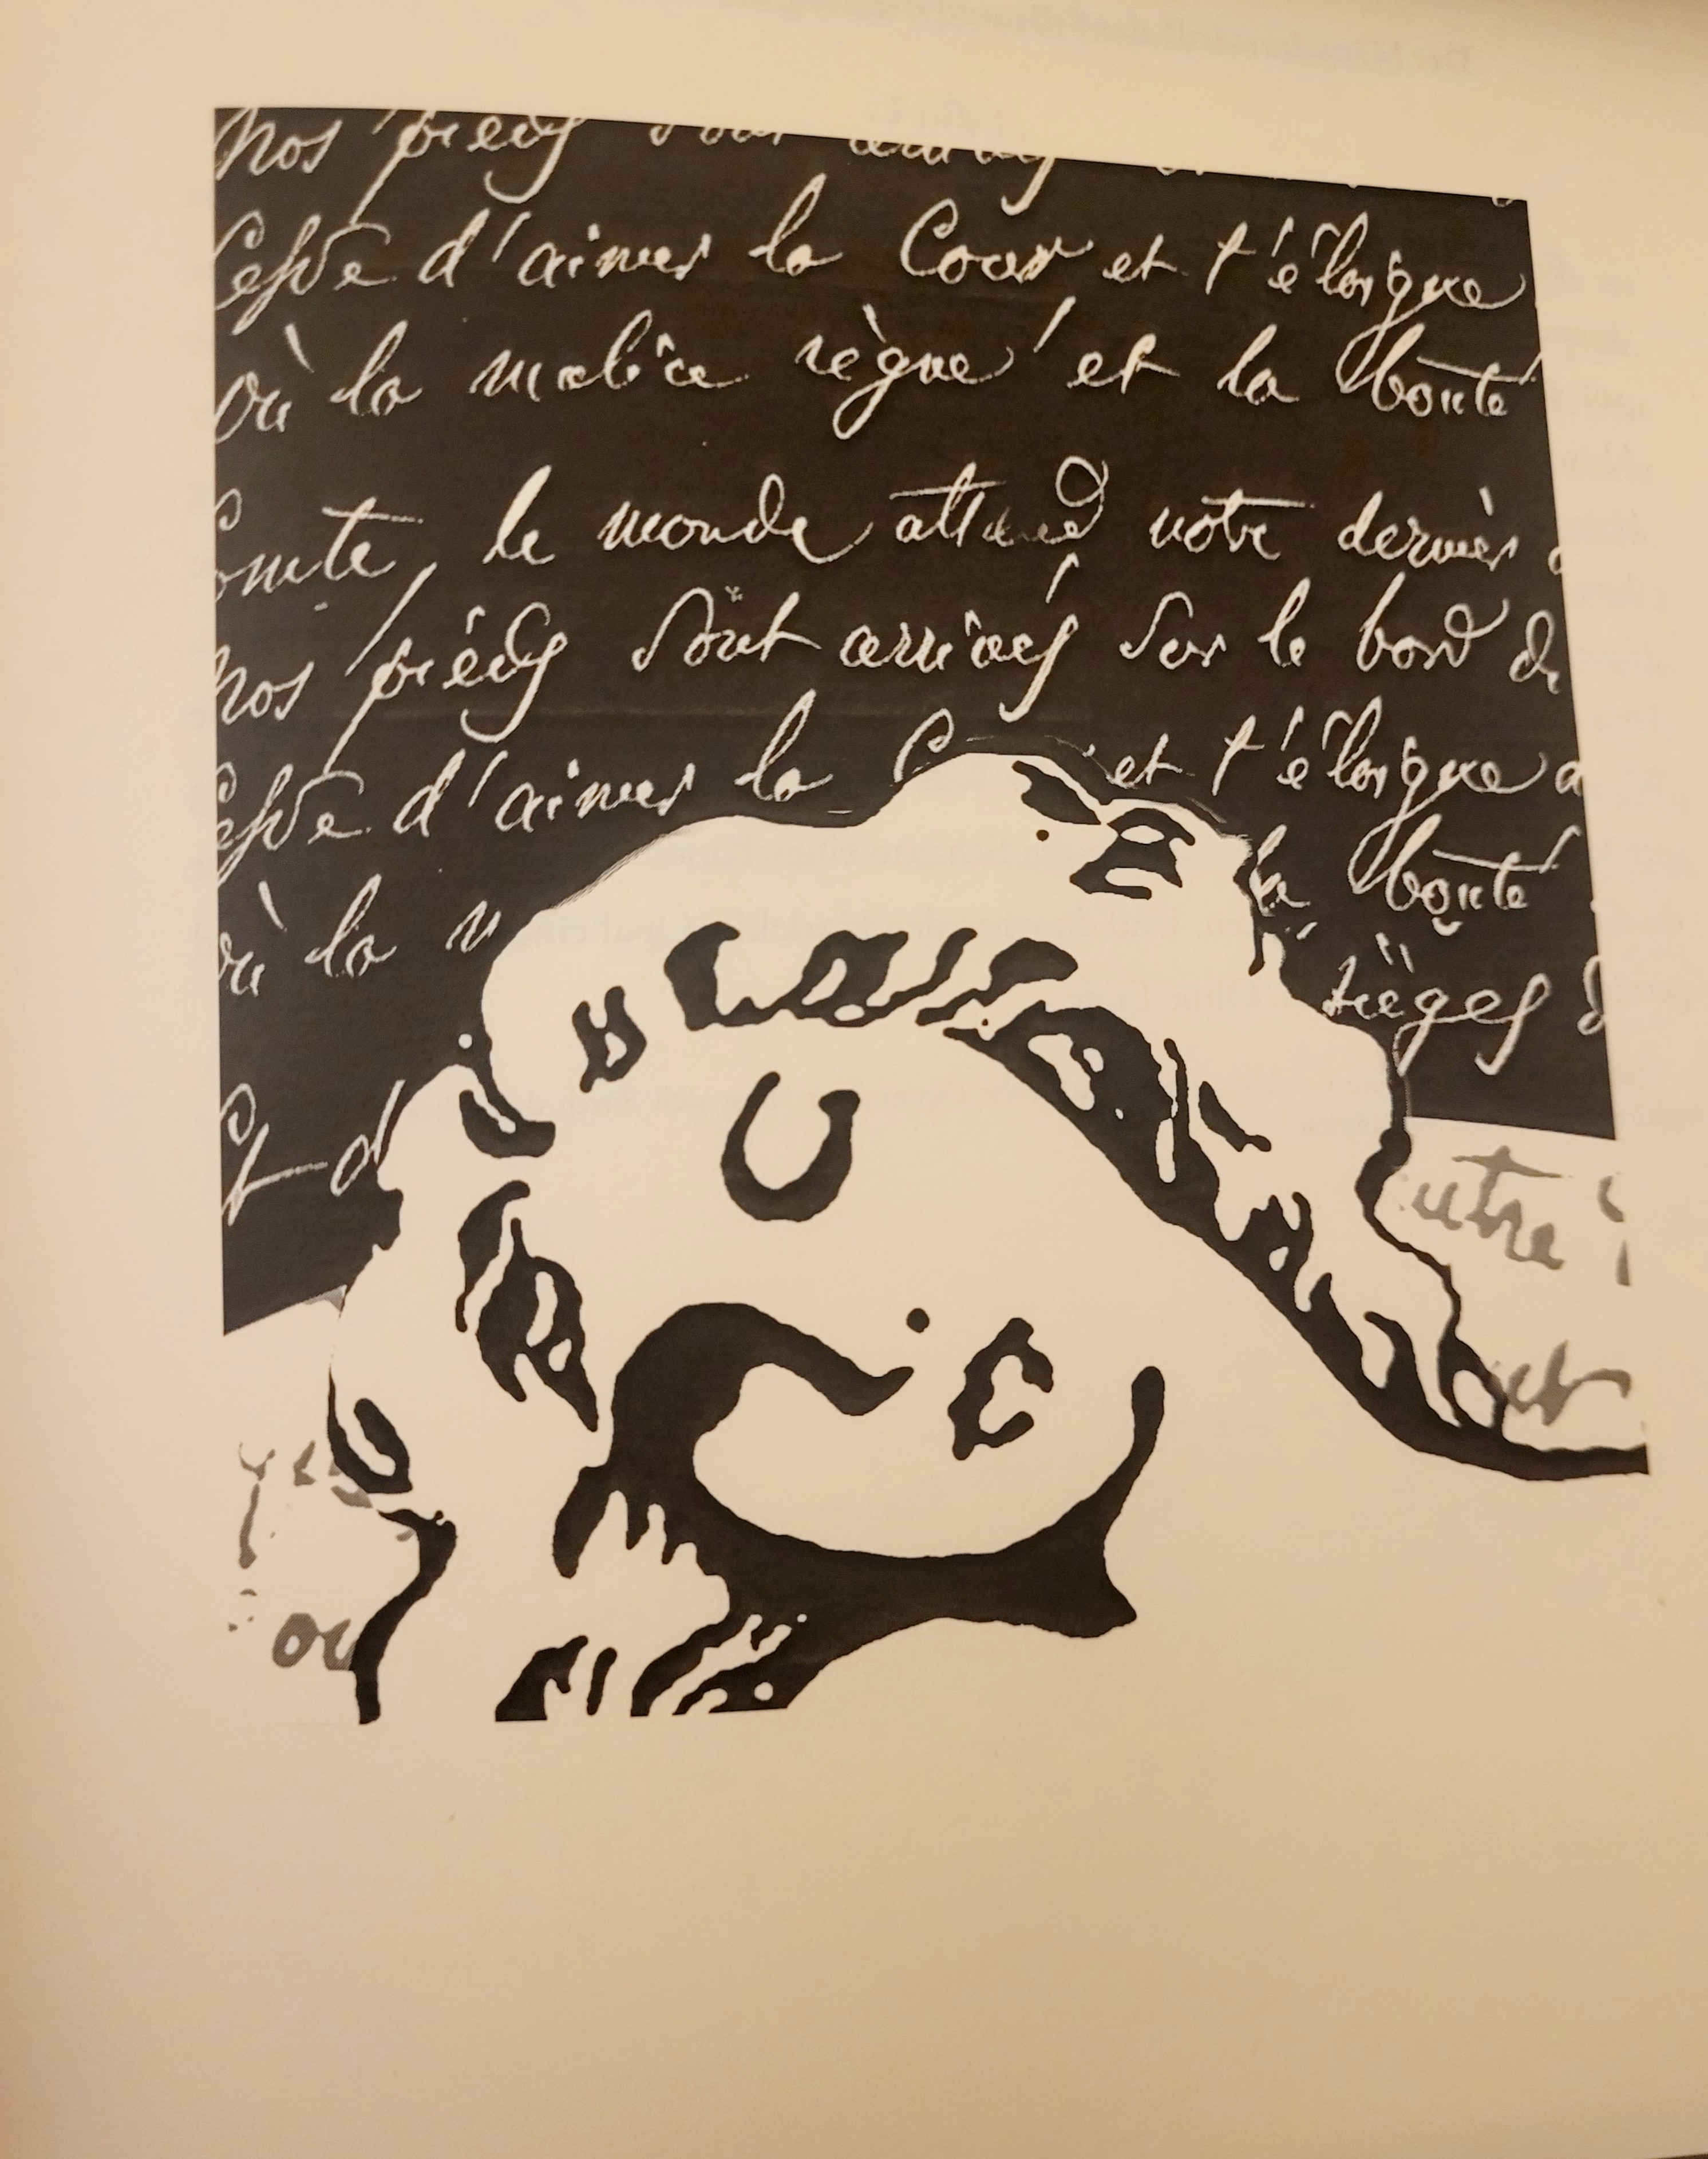 nos piéds sont
Cesse d'aimer la Cour et t'éloigne
où la malice règne et la bonté
Comte, le monde attend votre dernier
nos piéds sont arrivés sur le bord de
Cesse d'aimer la et t'éloigne
où la la bonté
sièges
Et
utre
et
ou